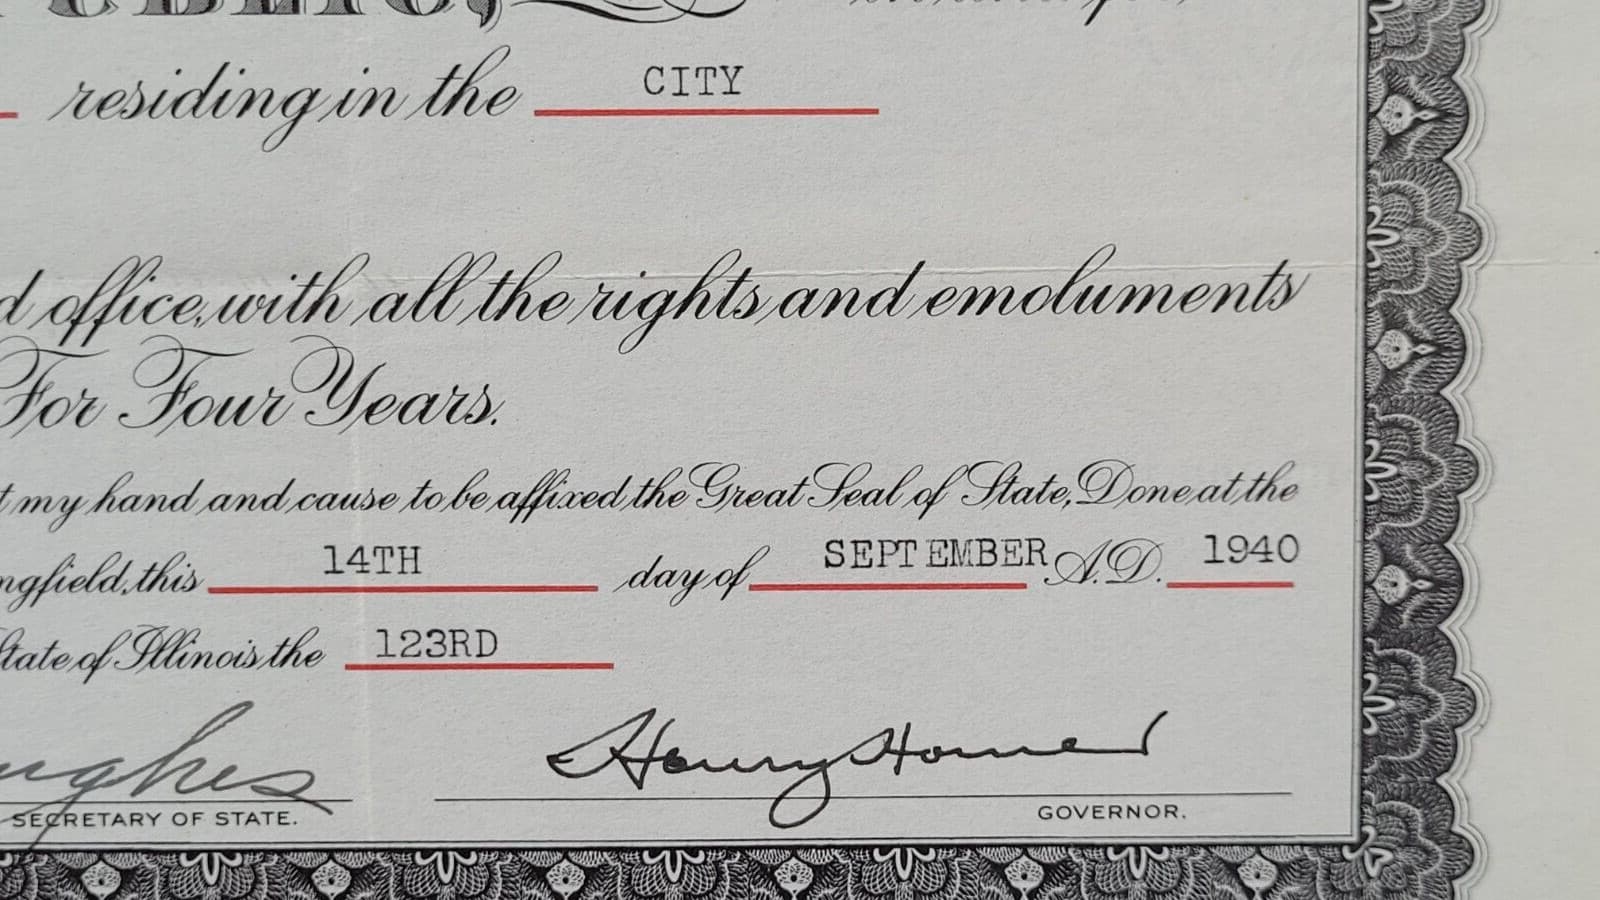 residing in the CITY
office, with all the rights and emoluments
For Four Years.
my hand and cause to be affixed the Great Seal of State, Done at the
this 14TH day of SEPTEMBER A.D. 1940
State of Illinois, the 123RD
Henry Horner
SECRETARY OF STATE.
GOVERNOR.